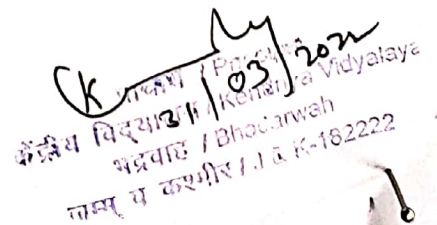 31/03/2022
प्राचार्य / Principal
केंद्रीय विद्यालय / Kendriya Vidyalaya
भद्रवाह / Bhadarwah
जम्मू व कश्मीर / J & K-182222